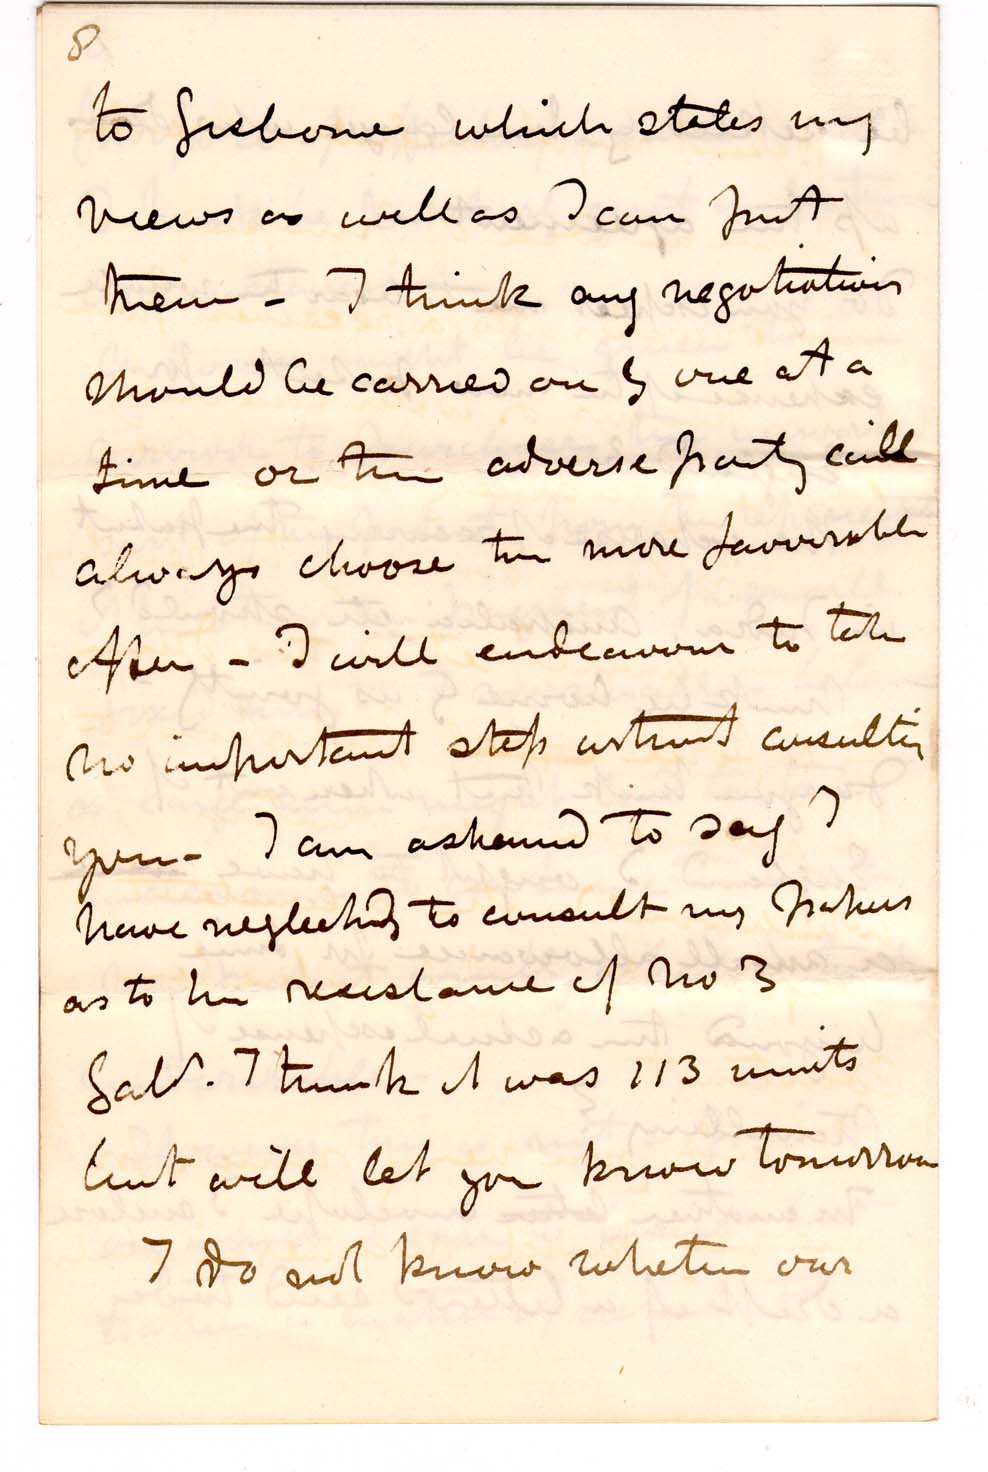 8
to Gisborne which states my
views as well as I can put
them - I think any negotiation
should be carried on by one at a
time or the adverse party will
always choose the more favourable
offer - I will endeavour to take
no important step without consulting
you - I am ashamed to say I
have neglected to consult my papers
as to the resistance of No 3
Galv. I think it was 113 units
but will let you know tomorrow
I do not know whether our